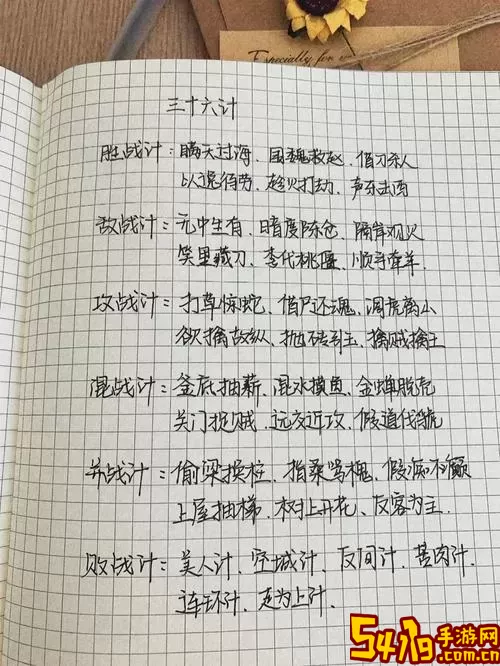 Especially for
三十六计
胜战计：瞒天过海、围魏救赵、借刀杀人
以逸待劳、趁火打劫、声东击西
敌战计：无中生有、暗度陈仓、隔岸观火
笑里藏刀、李代桃僵、顺手牵羊.
攻战计：打草惊蛇、借尸还魂、调虎离山
欲擒故纵、抛砖引玉、擒贼擒王
混战计：釜底抽薪、混水摸鱼、金蝉脱壳
关门捉贼、远交近攻、假道伐虢
并战计：偷梁换柱、指桑骂槐、假痴不癫
上屋抽梯、树上开花、反客为主.
败战计：美人计、空城计、反间计、苦肉计、
连环计、走为上计.
5419手游网
.com.cn